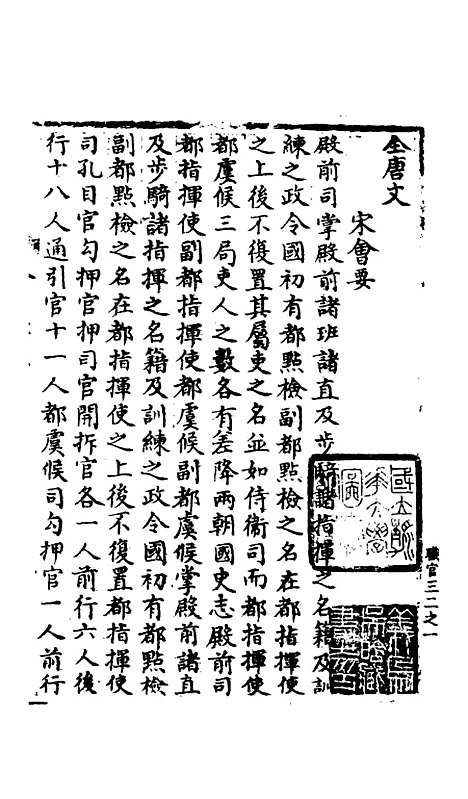 全唐文
宋會要
殿前司掌殿前諸班諸直及步騎諸指揮之名籍及訓
練之政令國初有都點檢副都點檢之名在都指揮使
之上後不復置其屬吏之名並如侍衛司而都指揮使
都虞候三局吏人之數各有差降兩朝國史志殿前司
都指揮使副都指揮使都虞候副都虞候掌殿前諸直
及步騎諸指揮之名籍及訓練之政令國初有都點檢
副都點檢之名在都指揮使之上後不復置都指揮使
司孔目官勾押官押司官開拆官各一人前行六人後
行十八人通引官十一人都虞候司勾押官一人前行
職官三二之一